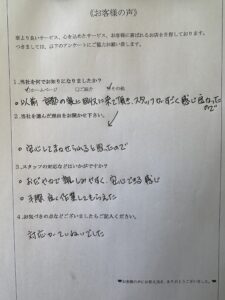 《お客様の声》
より良いサービス、心を込めたサービス、お客様に喜ばれるお店を目指しております。
つきましては、以下のアンケートにご協力お願い致します。
1.当社を何でお知りになりましたか?
ホームページ □ご紹介 その他
○以前 に来て頂き、スタッフさんがすごく感じ良かった
ので
2.当社を選んだ理由をお聞かせ下さい。
○安心してまかせられると思ったので
3.スタッフの対応などはいかがですか?
○おだやかで親しみやすく、安心できる感じ
○手際良く作業してもらえた
4.お気づきの点などございましたらご記入ください。
対応がていねいでした
♥お客様の声にお答え頂き、ありがとうございました。♥